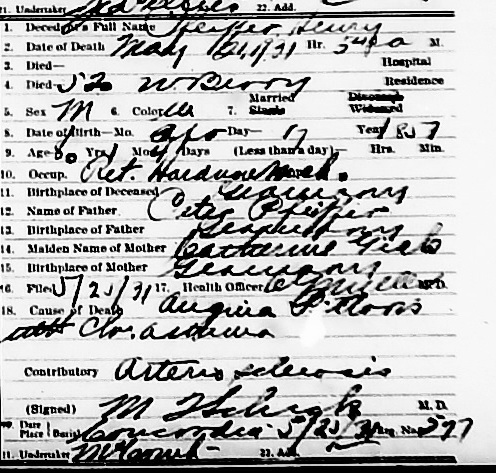 21. Undertaker 22. Add.
1. Decedent's Full Name Pfeiffer Henry
2. Date of Death May 21, 1931 Hr. 540 a M.
3. Died— Hospital
4. Died— 520 N. Berry Residence
Married Divorced
5. Sex M 6. Color W 7. Single Widowed
8. Date of Birth—Mo. Apr Day— 17 Year
9. Age 80 Yrs. 1 Mos. 4 Days (Less than a day)— Hrs. Min.
10. Occup. Ret. Hardware
11. Birthplace of Deceased Germany
12. Name of Father Peter Pfeiffer
13. Birthplace of Father Germany
14. Maiden Name of Mother Catherine
15. Birthplace of Mother Germany
16. Filed 5/23/31 17. Health Officer M.D.
18. Cause of Death Angina Pectoris
with Chr. asthma
Contributory Arterio sclerosis
(Signed) M M. D.
Date
Place Burial Concordia 5/23/31 Reg. No. 597
21. Undertaker 22. Add.